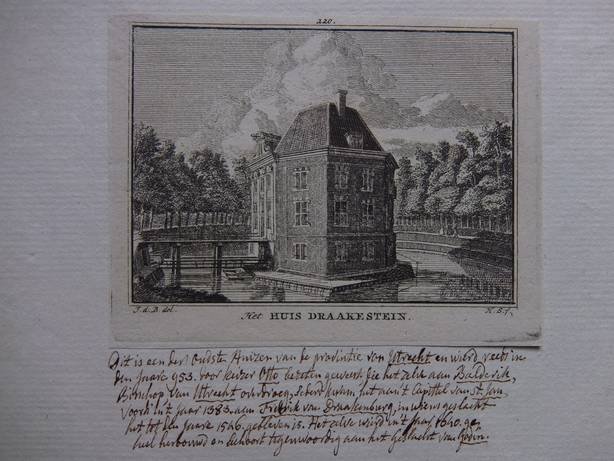 220.
J. d. B. del.
Het HUIS DRAAKESTEIN.
H. S. f.
Dit is een der oudste Huizen van de provintie van Utrecht en wierd reets in
den Jaare 953. voor keizer Otto bezeten geweest die het zelve aan Balderik,
Bisschop van Utrecht het aan't Capittel van St. Jan,
voorts in't Jaar 1385. aan Fredrik van Draakenburg, in wiens geslacht
het tot den Jaare is. Het zelve wierd in't Jaar 1640. ge
heel herbouwd en behoort tegenwoordig aan het geslacht van Godin.